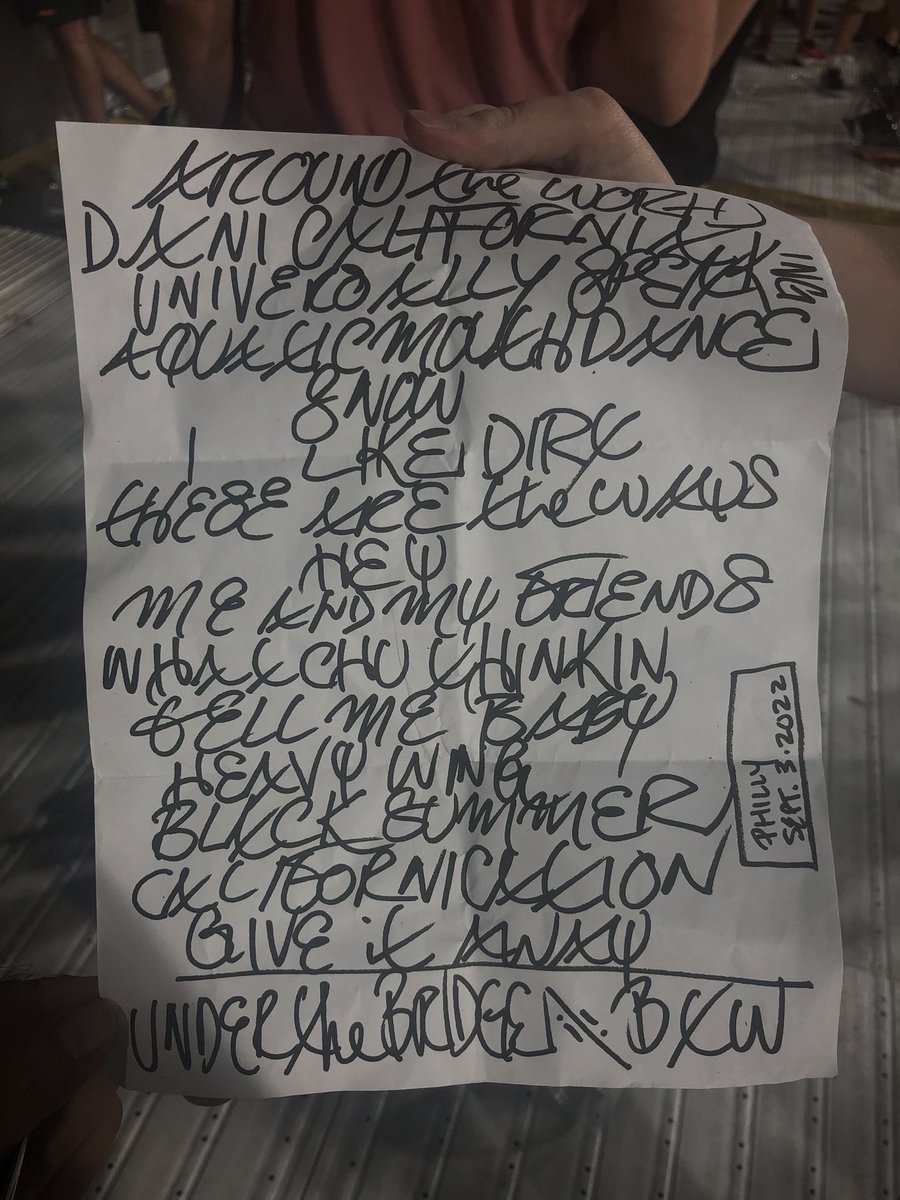 AROUND the WORLD
DANI CALIFORNIA
UNIVERSALLY SPEAKING
AQUATIC MOUTH DANCE
SNOW
I LIKE DIRT
THESE ARE the WAYS
HEY
ME AND MY FRIENDS
WHATCHU THINKIN
TELL ME BABY
HEAVY WING
BLACK SUMMER
CALIFORNICATION
GIVE it AWAY
UNDER the BRIDGE BTW
PHILLY
SEPT. 3.2022